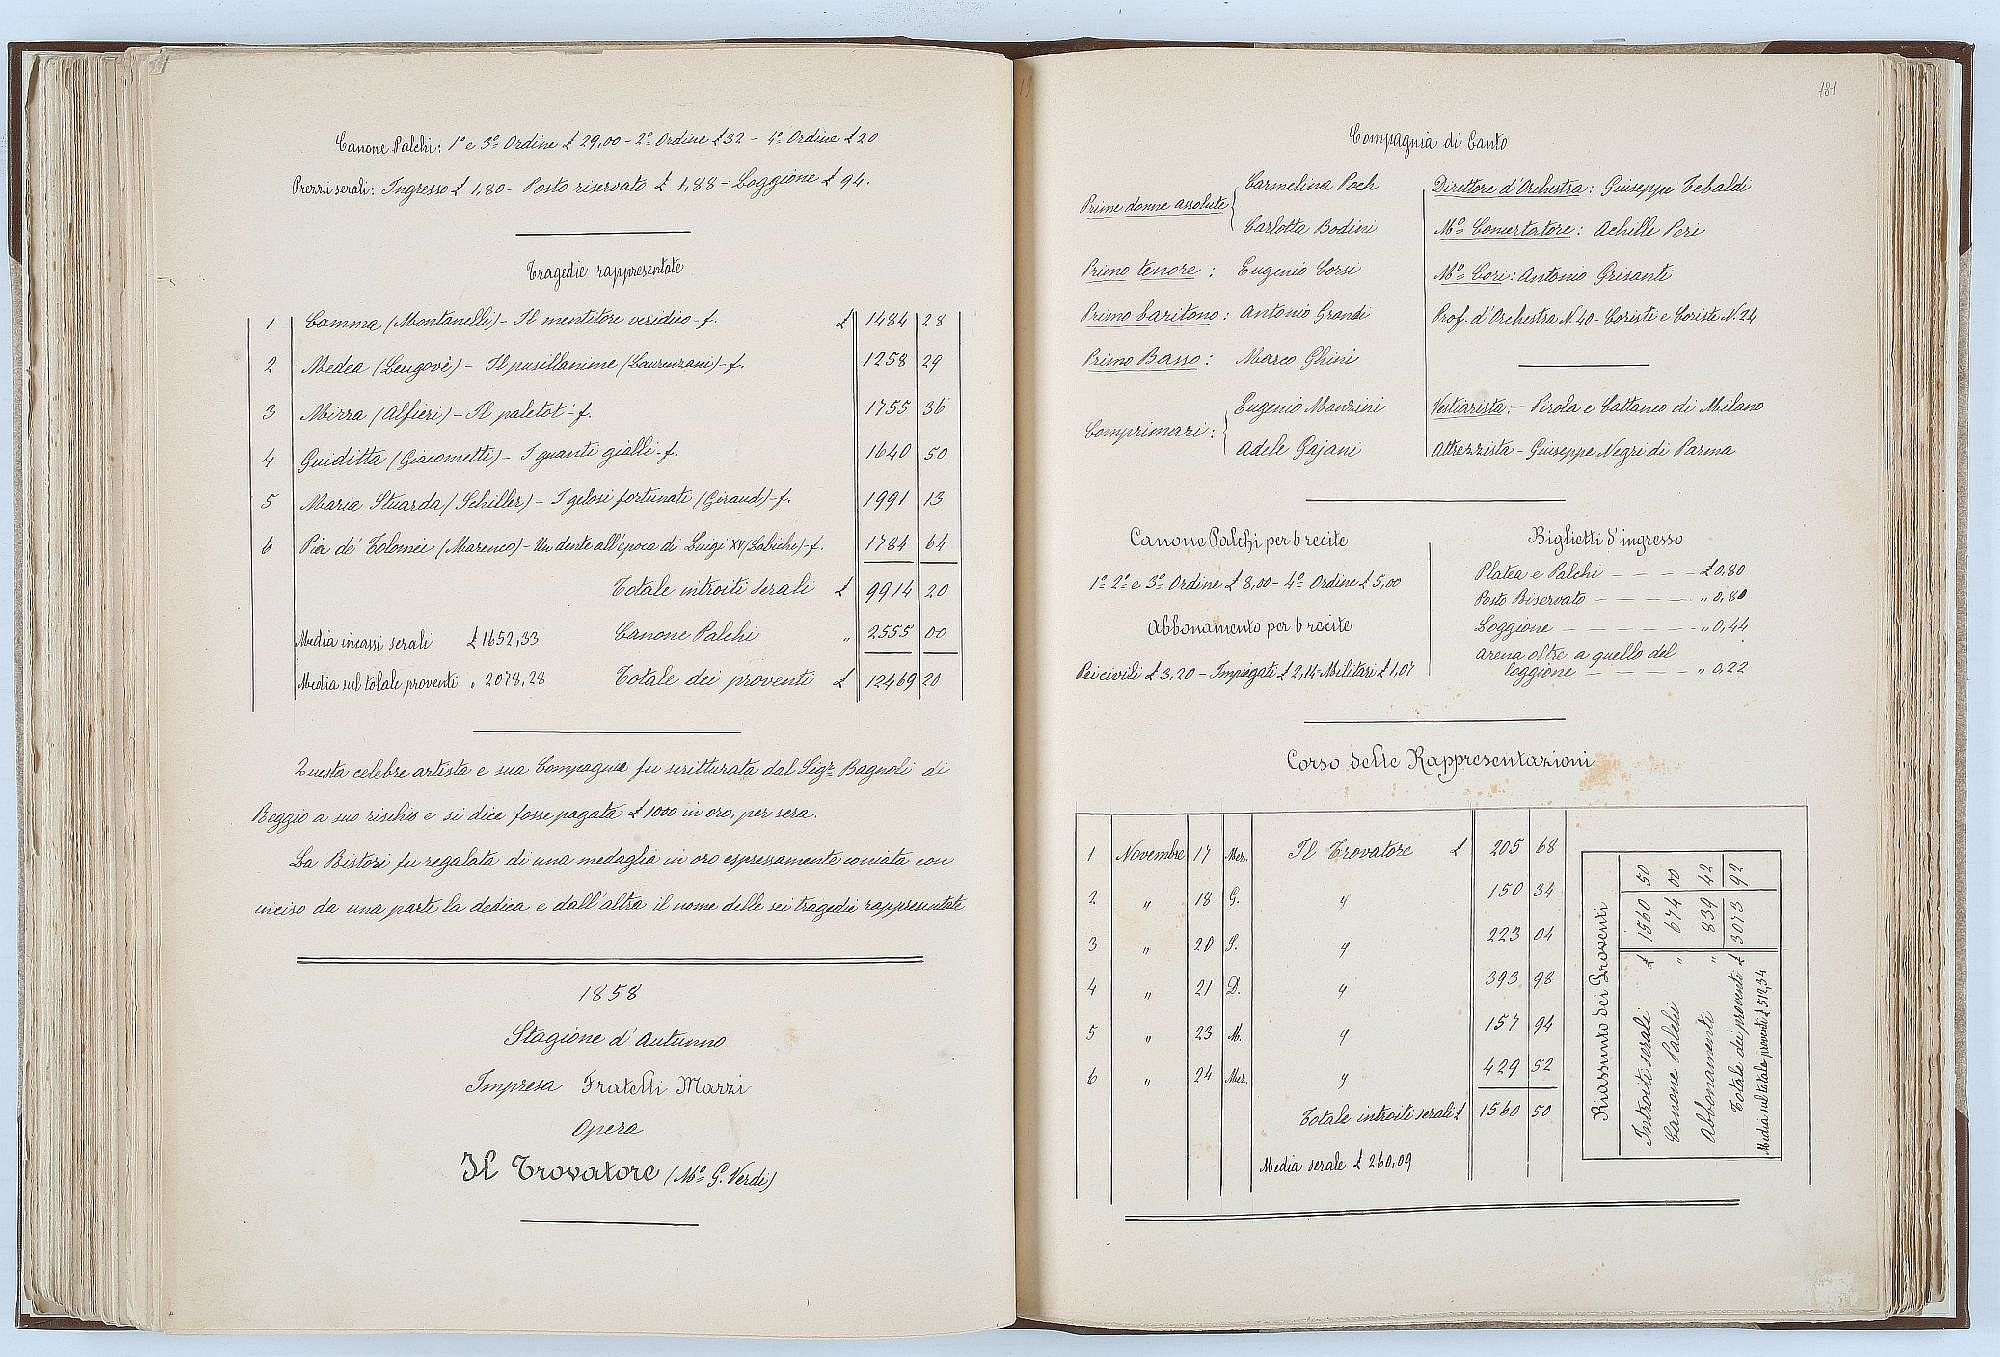 Canone Palchi: 1º e 3º Ordine £ 29,00 - 2º Ordine £ 32 - 4º Ordine £ 20
Prezzi serali: Ingresso £ 1,80 - Posto riservato £ 1,88 - Loggione £ 94.
Tragedie rappresentate
1 Camma (Montanelli) - Il mentitore veridico - f. £ 1484 28
2 Medea (Legouvè) - Il pusillanime (Laurenzani) - f. 1258 29
3 Mirra (Alfieri) - Il paletot - f. 1755 36
4 Giuditta (Giacometti) - I guanti gialli - f. 1640 50
5 Maria Stuarda (Schiller) - I gelosi fortunati (Giraud) - f. 1991 13
6 Pia de' Tolomei (Marenco) - Un dente all'epoca di Luigi XV (Labiche) - f. 1784 64
Totale introiti serali £ 9914 20
Media incassi serali £ 1652,33 Canone Palchi " 2555 00
Media sul totale proventi " 2078,28 Totale dei proventi £ 12469 20
Questa celebre artista e sua Compagnia fu scritturata dal Sigr. Bagnoli di
Reggio a suo rischio e si dice fosse pagata £ 1000 in oro, per sera.
La Ristori fu regalata di una medaglia in oro espressamente coniata con
inciso da una parte la dedica e dall'altra il nome delle sei tragedie rappresentate
1858
Stagione d'Autunno
Impresa Fratelli Marzi
Opera
Il Trovatore (Mº G. Verdi)
181
Compagnia di Canto
Prime donne assolute { Carmelina Poch
Carlotta Bodini
Primo tenore: Eugenio Corsi
Primo baritono: Antonio Grandi
Primo Basso: Marco Ghini
Comprimari: { Eugenio Manzini
Adele Pajani
Direttore d'Orchestra: Giuseppe Tebaldi
Mº Concertatore: Achille Peri
Mº Cori: Antonio Grisanti
Prof. d'Orchestra N. 40 - Coristi e Coriste N. 24
Vestiarista: - Pirola e Cattaneo di Milano
Attrezzista - Giuseppe Negri di Parma
Canone Palchi per 6 recite
1º 2º e 3º Ordine £ 8,00 - 4º Ordine £ 5,00
Abbonamento per 6 recite
Pei civili £ 3,20 - Impiegati £ 2,14 - Militari £ 1,07
Biglietti d'ingresso
Platea e Palchi - - - - £ 0,80
Posto Riservato - - - - " 0,80
Loggione - - - - " 0,44
Arena oltre a quello del
loggione - - - - " 0,22
Corso delle Rappresentazioni
1 Novembre 17 Mer. Il Trovatore £ 205 68
2 " 18 G. " 150 34
3 " 20 S. " 223 04
4 " 21 D. " 393 98
5 " 23 M. " 157 94
6 " 24 Mer. " 429 52
Totale introiti serali £ 1560 50
Media serale £ 260,09
Riassunto dei Proventi
Introiti serali £ 1560 50
Canone Palchi " 674 00
Abbonamenti " 839 42
Totale dei proventi £ 3073 92
Media sul totale proventi £ 512,34